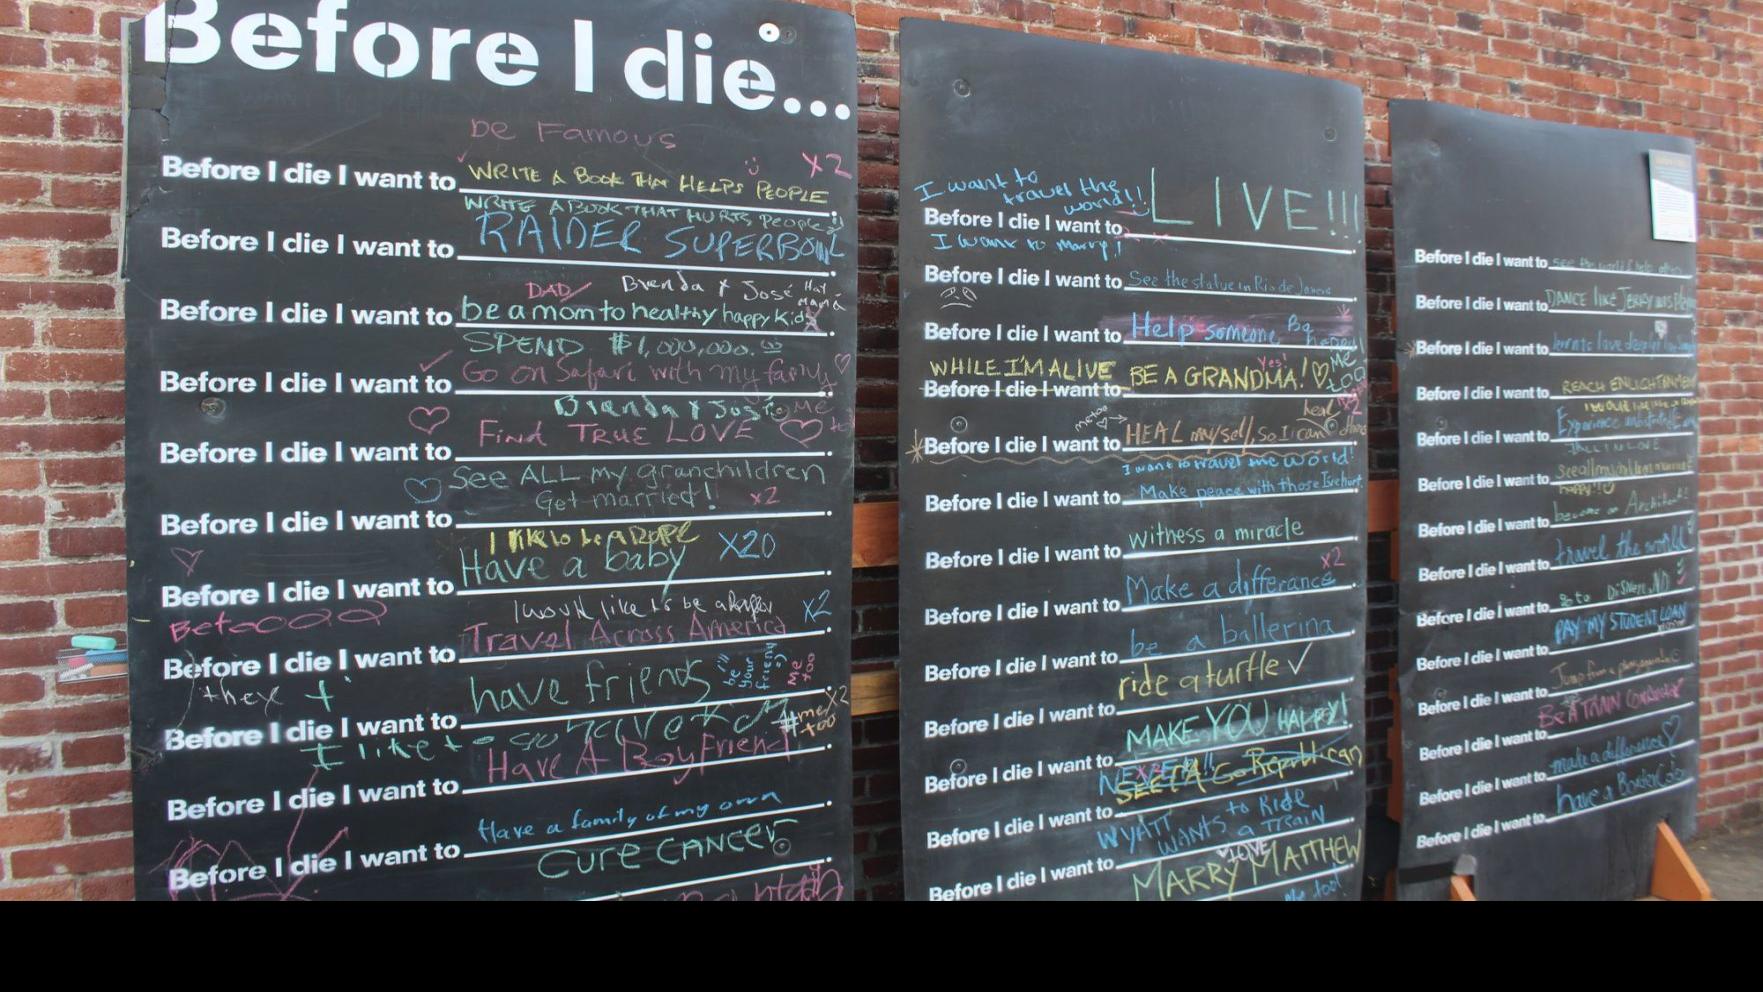 Before I die...
be Famous
Before I die I want to WRITE A BOOK THAT HELPS PEOPLE. X2
WRITE A BOOK THAT HURTS People
Before I die I want to RAIDER SUPERBOWL.
DAD Brenda & José Hot Mama
Before I die I want to be a mom to healthy happy kids.
SPEND $1,000,000.00
Before I die I want to Go on Safari with my family.
Brenda & José me too
Before I die I want to Find TRUE LOVE.
See ALL my granchildren
Before I die I want to Get married! x2.
I like to be a
Before I die I want to Have a baby X20.
I would like to be a X2
Before I die I want to Travel Across America.
they have friends be your friend :) Me too
Before I die I want to.
I like to #me too X2
Before I die I want to Have A Boyfriend.
Have a family of my own
Before I die I want to CURE CANCER.
I want to travel the world!!
Before I die I want to LIVE!!!
I want to marry!
Before I die I want to See the statue in Rio de Janero.
Before I die I want to Help someone Be happy!
WHILE I'M ALIVE
Before I die I want to BE A GRANDMA! Yes! Me too
me too heal x2
Before I die I want to HEAL myself, so I can others.
I want to travel the world!
Before I die I want to Make peace with those I've hurt.
Before I die I want to witness a miracle.
Before I die I want to Make a differance x2.
Before I die I want to be a ballerina.
Before I die I want to ride a turtle.
Before I die I want to MAKE YOU HAPPY!.
Before I die I want to SEE Republican.
Before I die I want to WYATT WANTS to Ride a TRAIN.
LOVE
Before I die I want to MARRY MATTHEW
Me too!
Before I die I want to see the world & help others
Before I die I want to DANCE LIKE JERRY WAS
Before I die I want to learn to love deeply
Before I die I want to REACH ENLIGHTENMENT
Before I die I want to Experience
FALL IN LOVE
Before I die I want to see all my children
happy!!
Before I die I want to become an Architect
Before I die I want to travel the world
Before I die I want to go to DISNEYLAND
Before I die I want to PAY MY STUDENT LOAN
Before I die I want to Jump from a plane
Before I die I want to BE A TRAIN CONDUCTOR
Before I die I want to make a difference
Before I die I want to have a Border Collie